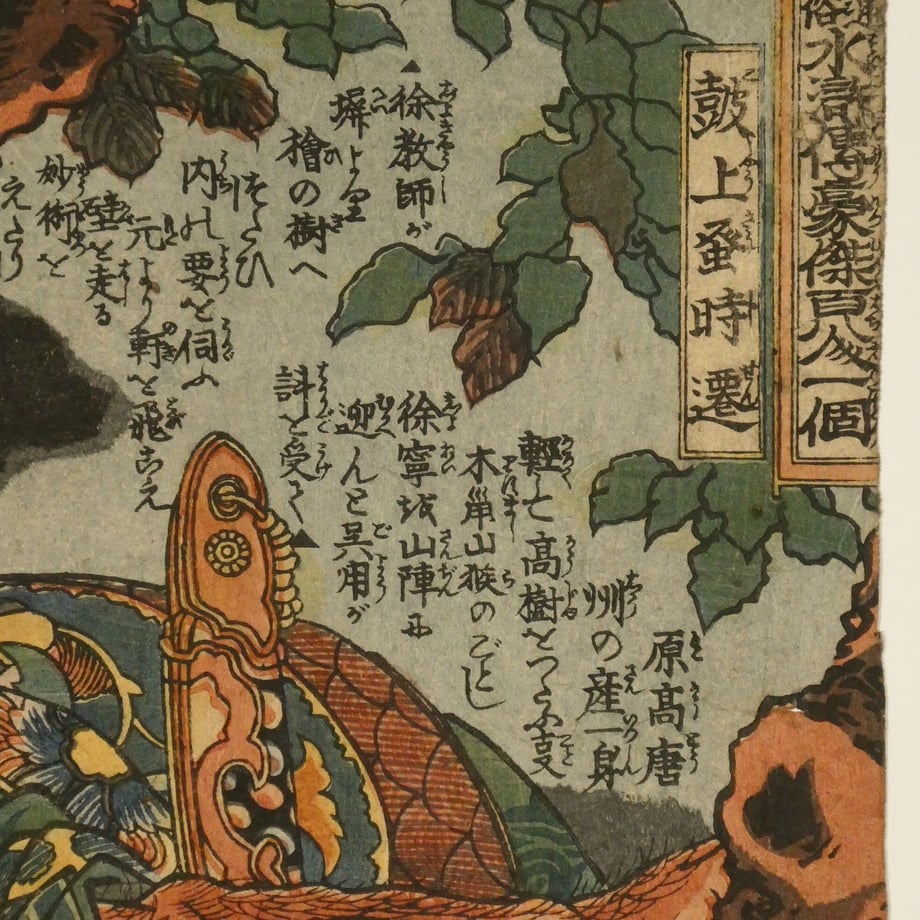 俗水滸傳豪傑百八人一個
鼓上蚤時遷
原髙唐
州の産一身
軽亡髙樹をつたふ支
木巣山猴のごとし
徐寧越山陣に
迎んと呉用が
討を受て
徐教師が
塀より
檜の樹へ
つたひ
内の要を伺ふ
元より軒を飛こえ
壁を走る
妙術を
えたり